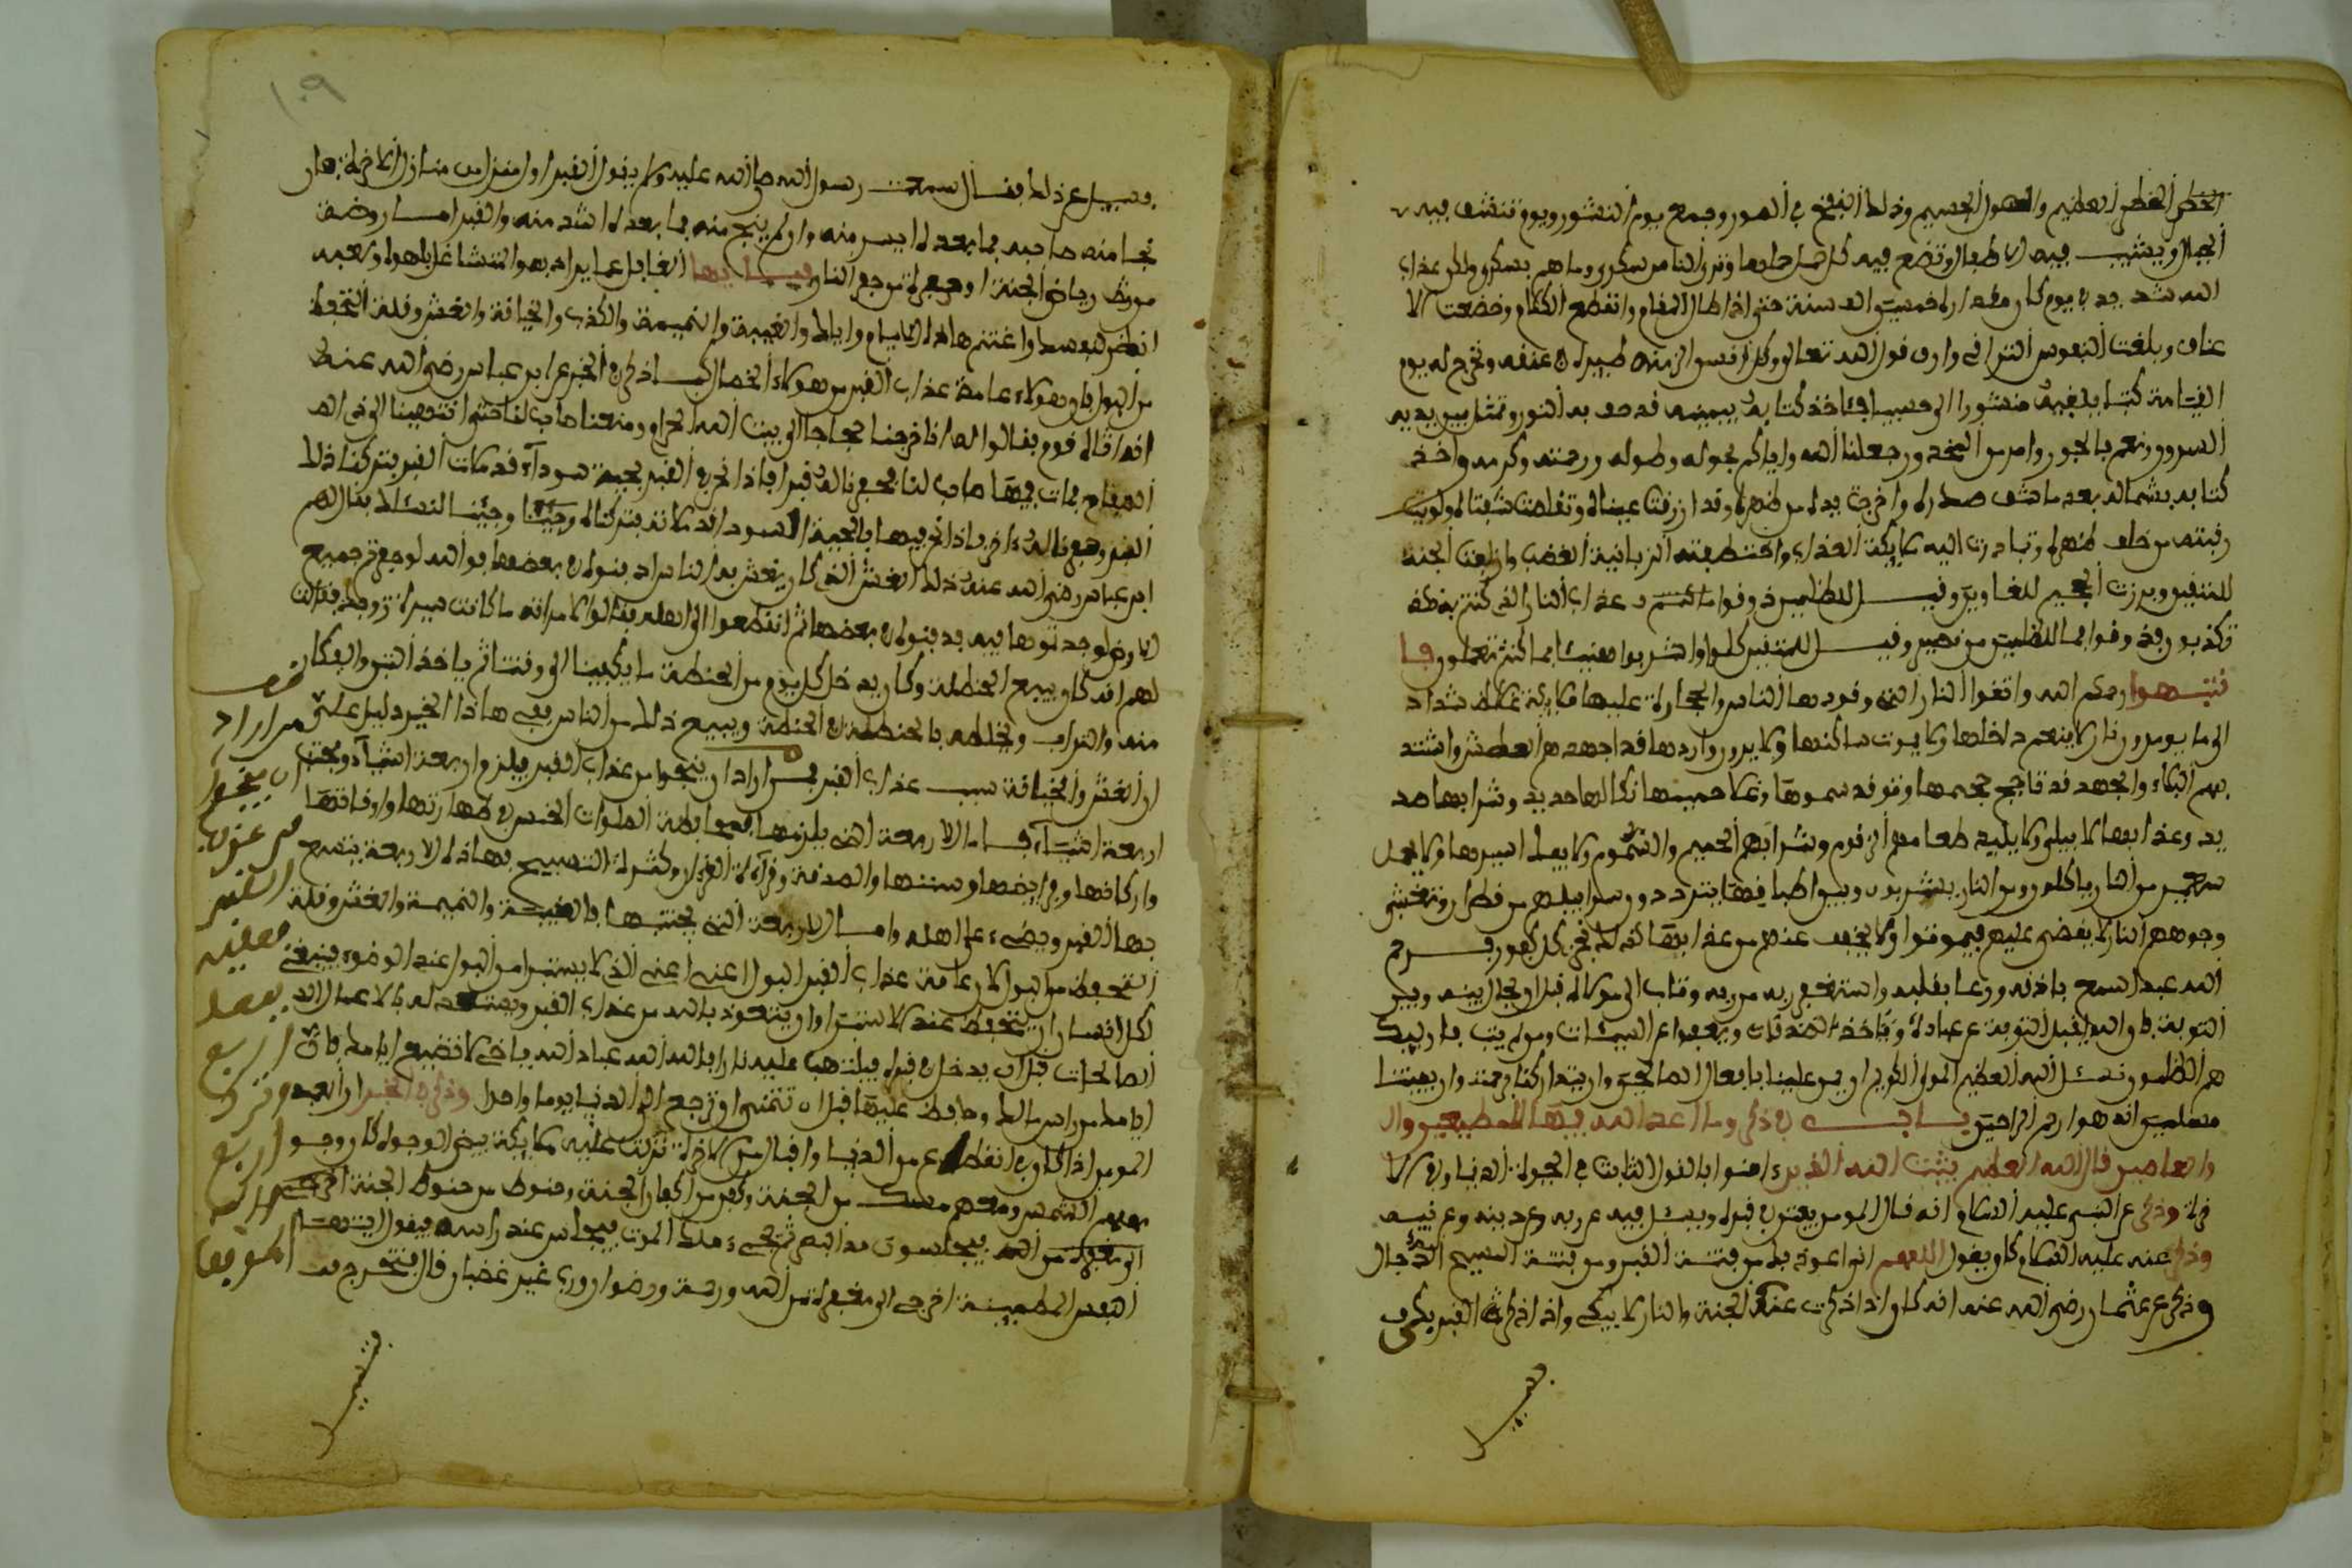 الخطر العظيم والهول الجسيم وذلك النفخ في الصور وجمع يوم النشور ويوم تنشف فيه
الجبال ويشيب فيه الاطفال وتضع فيه كل حمل حملها وترى الناس سكرى وما هم بسكرى ولكن عذاب
الله شديد في يوم كان مقداره خمسين الف سنة حتى اذا طال المقام وانقطع الكلام وخضعت الا
عناق وبلغت النفوس التراقي قول الله تعالى وكل انسان الزمنه طئره في عنقه ونخرج له يوم
القيامة كتبا يلقيه منشورا الى حسيبا فئاخذ كتابه بيمينه قد حف به النور وتمثل بين يديه
السرور ونعم بالحور وامن من المحذور جعلنا الله واياكم بحوله وطوله ورحمته وكرمه واخذ
كتابه بشماله بعد ما شق صدره واخرجت يده من ظهره وقد ازرقت عيناه وتقلصت شفتاه ولويت
رقبته من خلف ظهره وتبادرت اليه ملايكة العذاب واختطفته الزبانية الغضاب وازلفت الجنة
للمتقين وبرزت الجحيم للغاوين وقيل للظلمين ذوقوا ما كنتم عذاب النار التي كنتم بها
تكذبون فذوقوا فما للظلمين من نصير وقيل للمتقين كلوا واشربوا هنيئا بما كنتم تعملون فا
نتبهوا رحمكم الله واتقوا النار التي وقودها الناس والحجارة عليها ملايكة غلاظ شداد
لا ينعم داخلها ولا يموت ساكنها ولا يروى واردها قد اجهدهم العطش واشتد
بهم البكاء والجهد قد تاجج جحيمها وتوقد سمومها وعلا حميمها نكالها حديد وشرابها صد
يد وعذابها لا يبلى ولا يبيد طعامهم الزقوم وشرابهم الحميم والسموم ولا يفك اسيرها ولا
من النار ياكلون ومن النار يشربون وبين اطباقها يترددون سرابيلهم من قطران وتغشى
وجوههم النار لا يقضى عليهم فيموتوا ولا يخفف عنهم من عذابها كذلك نجزي كل كفور فرحم
الله عبدا سمع باذنه ووعا بقلبه واستغفر ربه من ذنبه وتاب الى مولاه قبل ان يحال بينه وبين
التوبة فان الله يقبل التوبة عن عباده وياخذ الصدقات ويعفوا عن السيئات ومن لم يتب فاوليك
هم الظلمون نسئل الله العظيم المولى الكريم ان يمن علينا بافعال الصالحين وان يتداركنا برحمته وان يميتنا
مسلمين انه هو ارحم الراحمين باب في ذكر ما اعد الله فيها للمطيعين وال
والعاصين قال الله العظيم يثبت الله الذين ءامنوا بالقول الثابت في الحيوة الدنيا وفي الا
خرة وذكر عن النبي عليه السلام انه قال المومن يفتن في قبره ويسئل فيه عن ربه وعن دينه وعن نبيه
وذكر عنه عليه السلام كان يقول اللهم اني اعوذ بك من فتنة القبر ومن فتنة المسيح الدجال
وذكر عن عثمان رضي الله عنه انه كان اذا ذكرت عنده الجنة والنار لا يبكي واذا ذكر القبر بكى
فقيل
١٠٩
فقيل عن ذلك فقال سمعت رسول الله صلى الله عليه وسلم يقول القبر اول منزل من منازل الاخرة فان
نجا منه صاحبه فما بعده ايسر منه وان لم ينج منه فما بعده اشد منه والقبر اما روضة
من رياض الجنة او حفرة من حفر النار فيا ايها الغافل عما يراد به والمتشاغل بلهوه ولعبه
انظر لنفسك واغتنم هاذه الايام واياك والغيبة والنميمة والكذب والخيانة والغش وقلة التحفظ
من البول فان هولاء عامة عذاب القبر من هولاء الخصال كما ذكر في الخبر عن ابن عباس رضي الله عنه
انه اتاه قوم فقالوا له انا خرجنا حجاجا الى بيت الله الحرام ومعنا صاحب لنا حتى انتهينا الى ذي ال
فمات فيها صاحب لنا فحفرنا له قبرا فاذا نحن في القبر بحية سودآء قد ملات القبر فتركنا ذلك
القبر وحفرنا له ءاخر فاذا نحن فيها بالحية السوداء قد ملاته فتركناه وجينا نسئلك فقال لهم
ابن عباس رضي الله عنه ذلك الغش الذي كان يغش به الناس ادفنوه في بعضها فوالله لو حفرتم جميع
الارض لوجدتموها فيه فدفنوه في بعضها ثم انقطعوا الى اهله فقالوا لامراته ما كانت سيرة زوجك فقالت
لهم انه كان يبيع الحنطة وكان يدخل كل يوم من الحنطة ما يكفينا الى وقتنا ثم ياخذ التبن
منه والتراب ويخلطه بالحنطة ويبيع ذلك من الناس ففي هاذا الخبر دليل على
ان الغش والخيانة سبب عذاب القبر فمن اراد ان ينجوا من عذاب القبر فيلزم اربعة اشياء ويجتنب
اربعة اشياء فاما الاربعة التي يلزمها فمحافظة الصلوات الخمس في طهارتها واوقاتها
واركانها وفرايضها وسننها والصدقة وقراءة القرءان وكثرة التسبيح فهاذه الاربعة يتسع
بها القبر ويضيء على اهله واما الاربعة التي يجتنبها فالغيبة والنميمة والغش وقلة
التحفظ من البول لان عامة عذاب القبر البول اعني الذي لا يستبرا من البول عند الوضوء فينبغي
لكل انسان ان يتحفظ عند الاستبراء ان يتعوذ بالله من عذاب القبر ويستعد له بالاعمال
الصالحات قبل ان يدخل في قبره فيلتهب عليه نارا فالله الله عباد الله ياخي لا تضيع ايامك فان
ايامك من راس مالك وحافظ عليها قبل ان تتمنى ان ترجع الى الدنيا يوما واحدا وذكر في الخبر ان العبد
المومن اذا كان في انقطاع من الدنيا واقبال من الاخرة نزلت عليه ملايكة بيض الوجوه كان وجو
ههم الشمس ومعهم من الجنة وكفن من اكفان الجنة وحنوط من حنوط الجنة
فيجلسون مد البصر ثم يجيء ملك الموت فيجلس عند راسه فيقول ايتها
النفس المطمينة اخرجي الى مغفرة من الله ورحمة ورضوان ورب غير غضبان قال فتخرج
من اراد
ان ينجوا
من عذاب
القبر
فعليه
بفعل
اربع
وترك
اربع
فتسيل